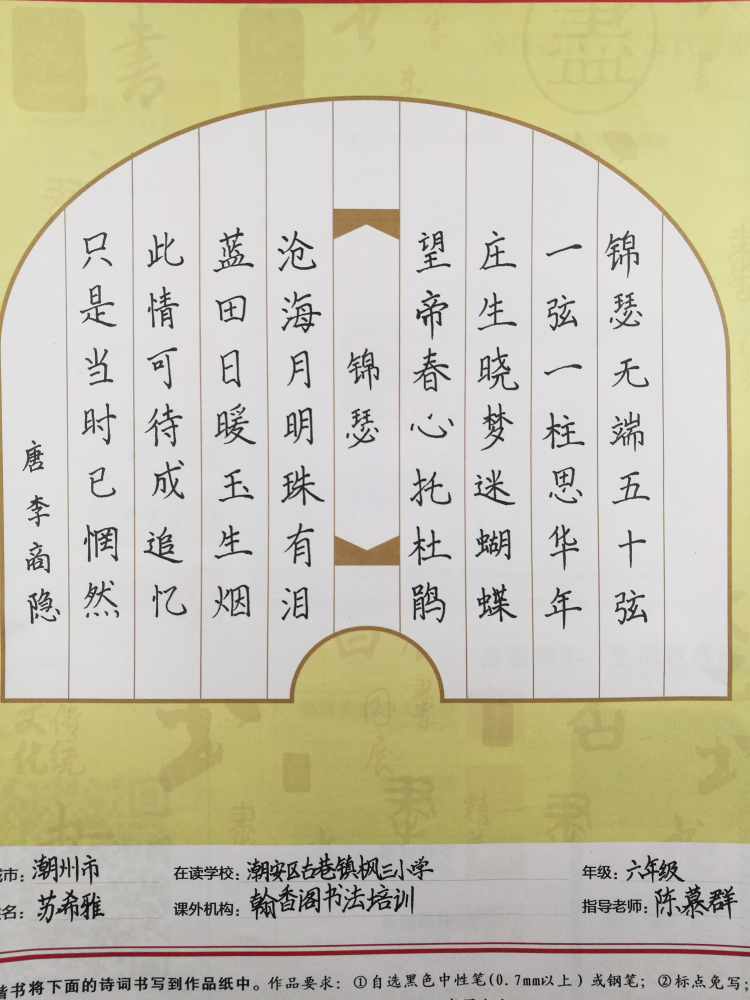 锦瑟无端五十弦
一弦一柱思华年
庄生晓梦迷蝴蝶
望帝春心托杜鹃
锦瑟
沧海月明珠有泪
蓝田日暖玉生烟
此情可待成追忆
只是当时已惘然
唐李商隐
市：潮州市 在读学校：潮安区古巷镇枫三小学 年级：六年级
名：苏希雅 课外机构：翰香阁书法培训 指导老师：陈慕群
楷书将下面的诗词书写到作品纸中。作品要求：①自选黑色中性笔(0.7mm以上)或钢笔；②标点免写；